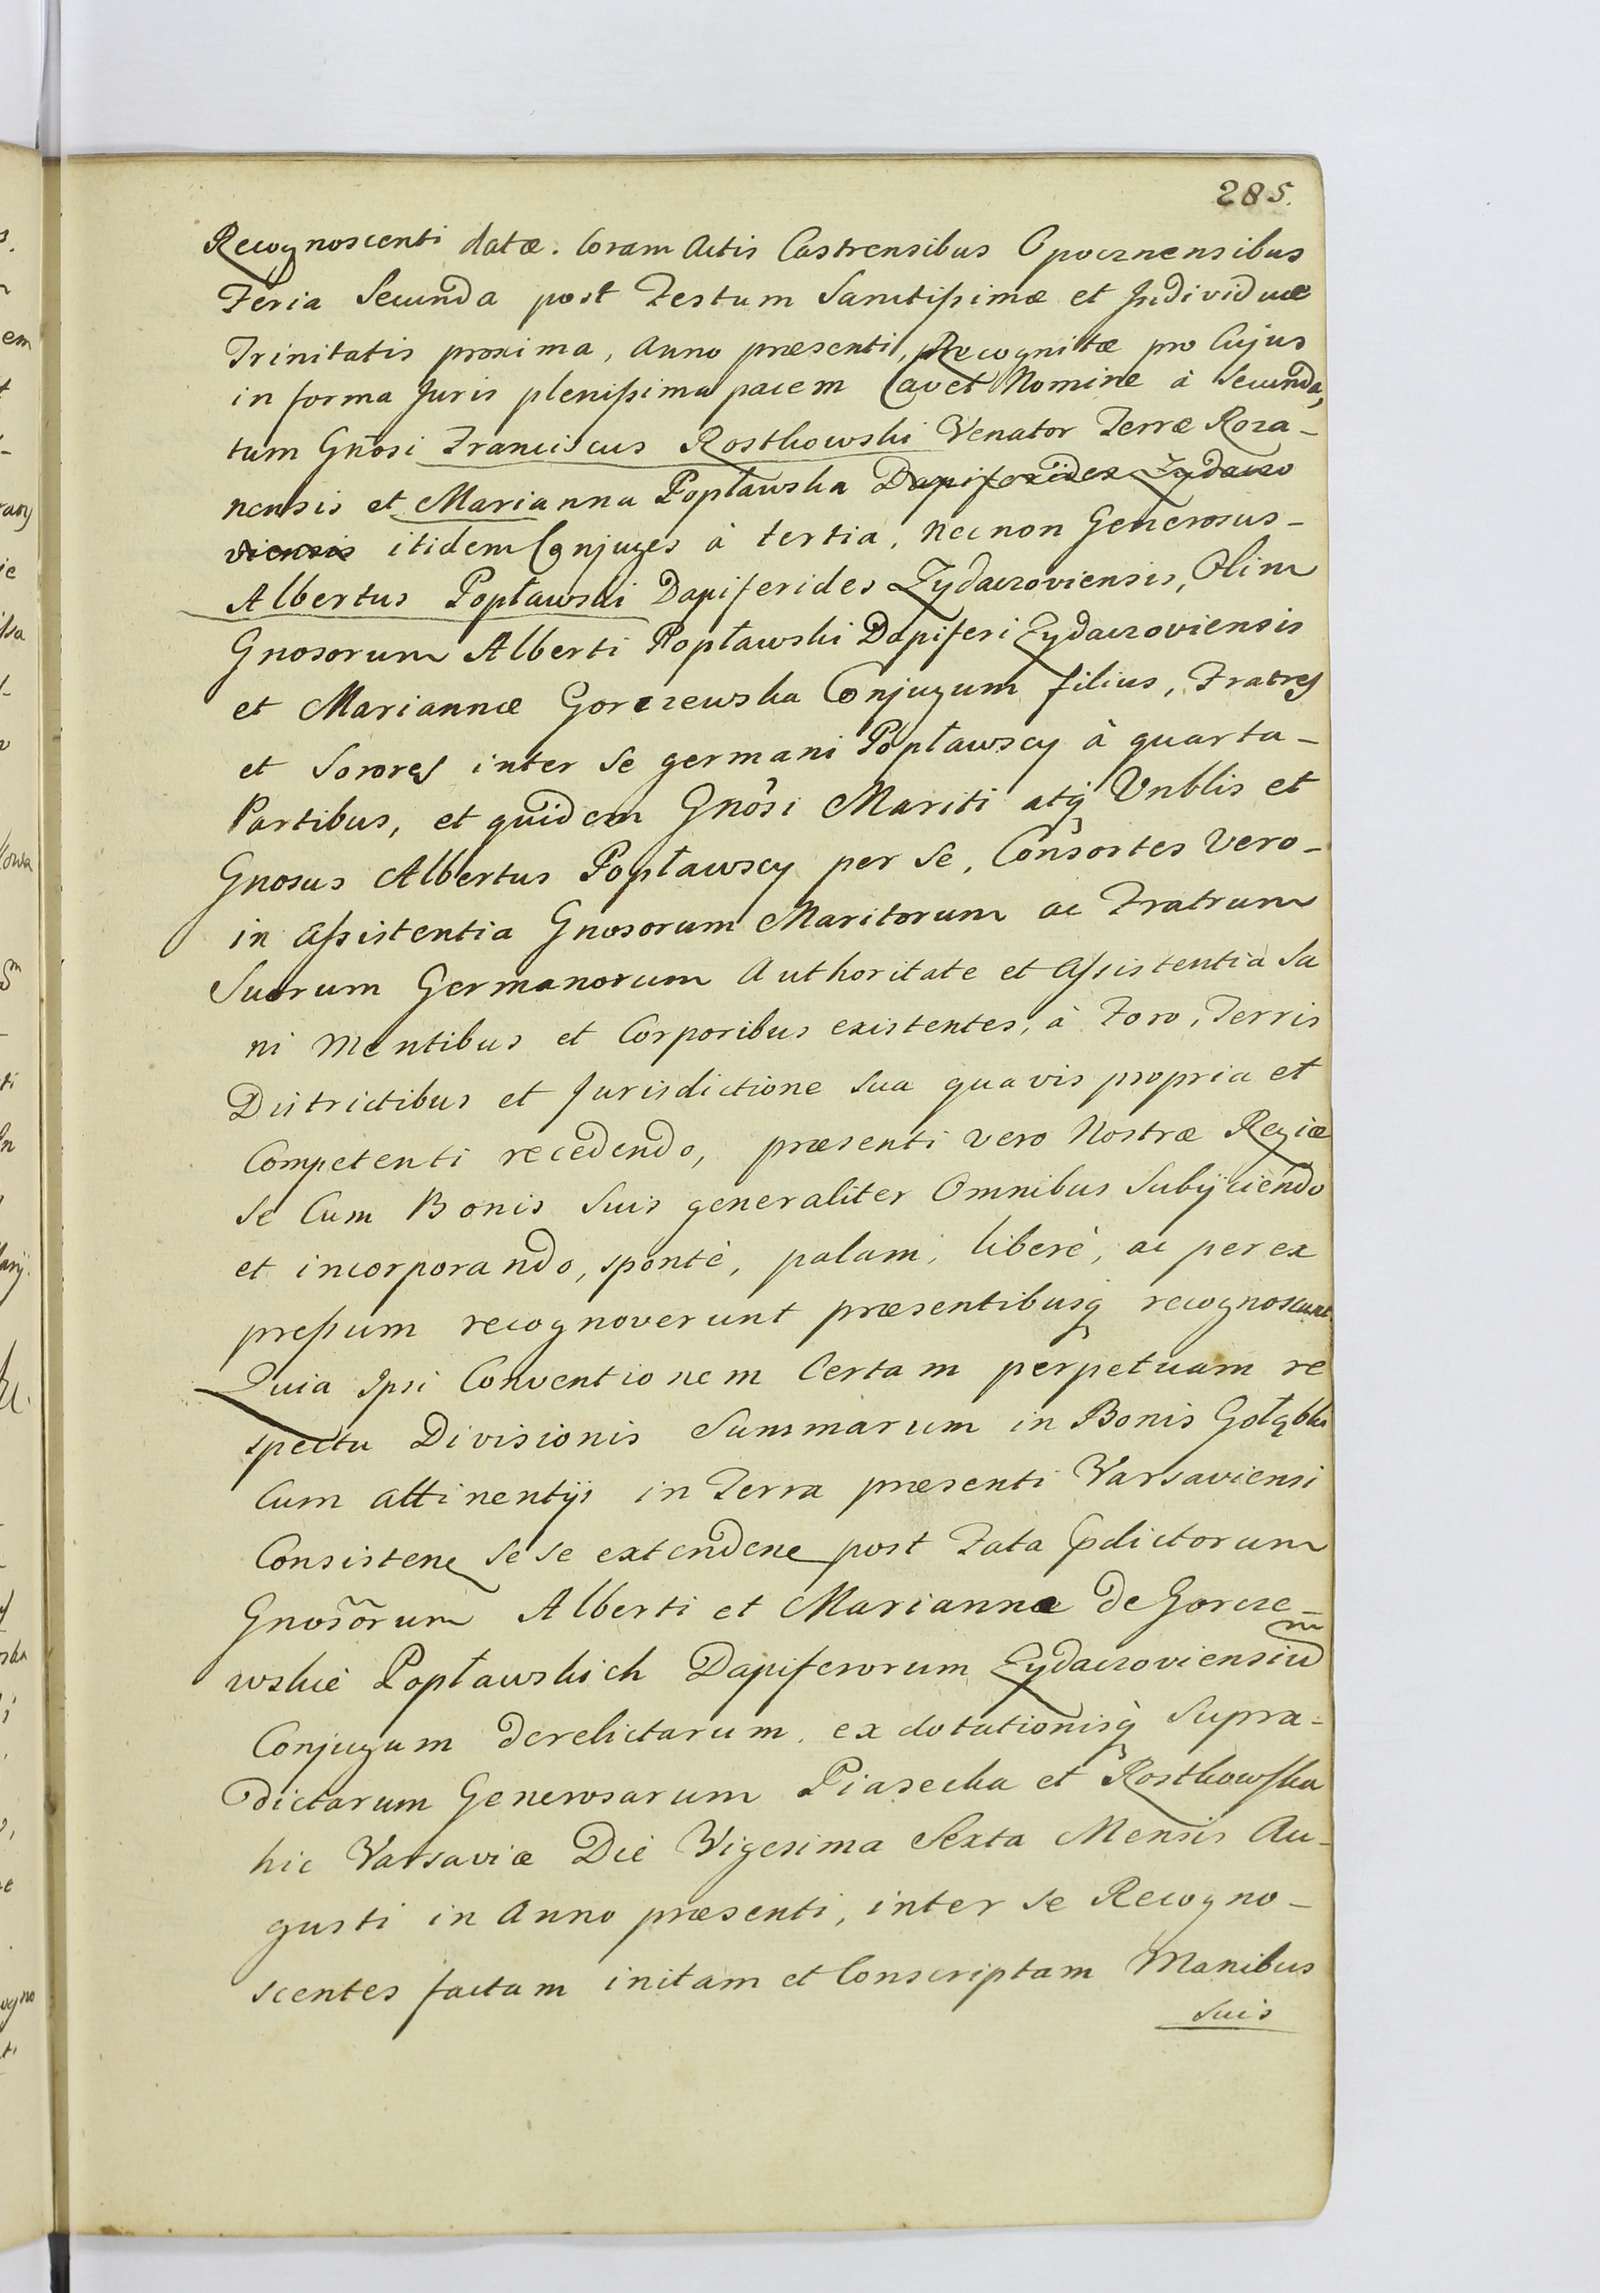 285.
Recognoscenti datæ. Coram Actis Castrensibus Opocznensibus
Feria Secunda post Festum Sanctissimæ et Individuæ
Trinitatis proxima, Anno præsenti, Recognitæ pro Cujus
in forma Juris plenissima pacem Cavet Nomine à Secunda,
tum Gnosi Franciscus Rostkowski Venator Terræ Roza-
nensis et Marianna Popławska Dapiferides Zydaczo
viensis itidem Conjuges à tertia, nec non Generosus-
Albertus Popławski Dapiferides Zydaczoviensis, Olim
Gnosorum Alberti Popławski Dapiferi Zydaczoviensis
et Mariannæ Gorczewska Conjugum filius, Fratres
et Sorores inter se germani Popławscy à quarta-
Partibus, et quidem Gnosi Mariti atq Vnblis et
Gnosus Albertus Popławscy per se, Consortes Vero-
in Assistentia Gnosorum Maritorum ac Fratrum
Suorum Germanorum Authoritate et Assistentia Sa
ni Mentibus et Corporibus existentes, à Foro, Terris
Districtibus et Jurisdictione sua quavis propria et
Competenti recedendo, præsenti vero Nostræ Regiæ
se Cum Bonis Suis generaliter Omnibus Subijciendo
et incorporando, spontè, palam, liberè, ac per ex
pressum recognoverunt præsentibusq recognoscunt.
Quia Ipsi Conventionem Certam perpetuam re
spectu Divisionis Summarum in Bonis Gołąbki
Cum attinentijs in Terra præsenti Varsaviensi
Consisten se se extenden post Fata pdictorum
Gnosorum Alberti et Mariannæ de Gorcze-
wskie Popławskich Dapiferorum Zydaczoviensium
Conjugum derelictarum, ex dotationisq Supra-
dictarum Generosarum Piasecka et Rostkowska
hic Varsaviæ Die Vigesima Sexta Mensis Au-
gusti in Anno præsenti, inter se Recogno-
scentes factam initam et Conscriptam Manibus
Suis